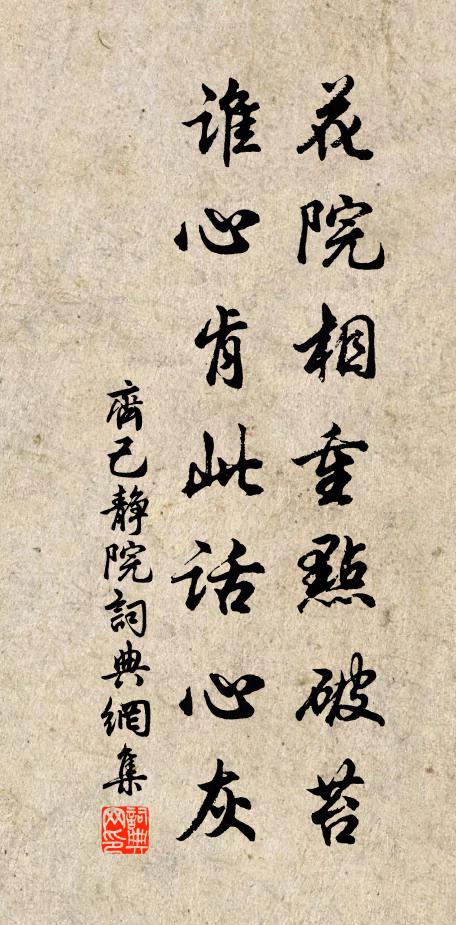 花院相重點破苔
誰心肯此話心灰
齊己靜院詞典網集
詞典网印